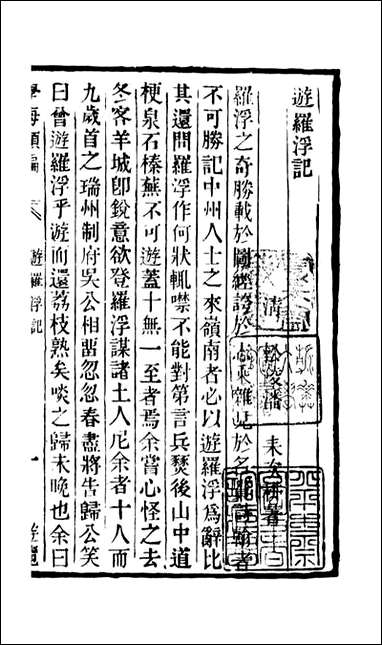 遊羅浮記
清 松陵潘 耒次耕著
羅浮之奇勝載於圖經證於 雜見於名 者
不可勝記中州人士之來嶺南者必以遊羅浮為辭比
其還問羅浮作何狀輒噤不能對第言兵燹後山中道
梗泉石榛蕪不可遊蓋十無一至者焉余嘗心怪之去
冬客羊城卽銳意欲登羅浮謀諸土人尼余者十人而
九歲首之瑞州制府吳公相畱忽忽春盡將告歸公笑
曰曾遊羅浮乎遊而還荔枝熟矣啖之歸未晚也余曰
學海類編
遊羅浮記
一
遊覽